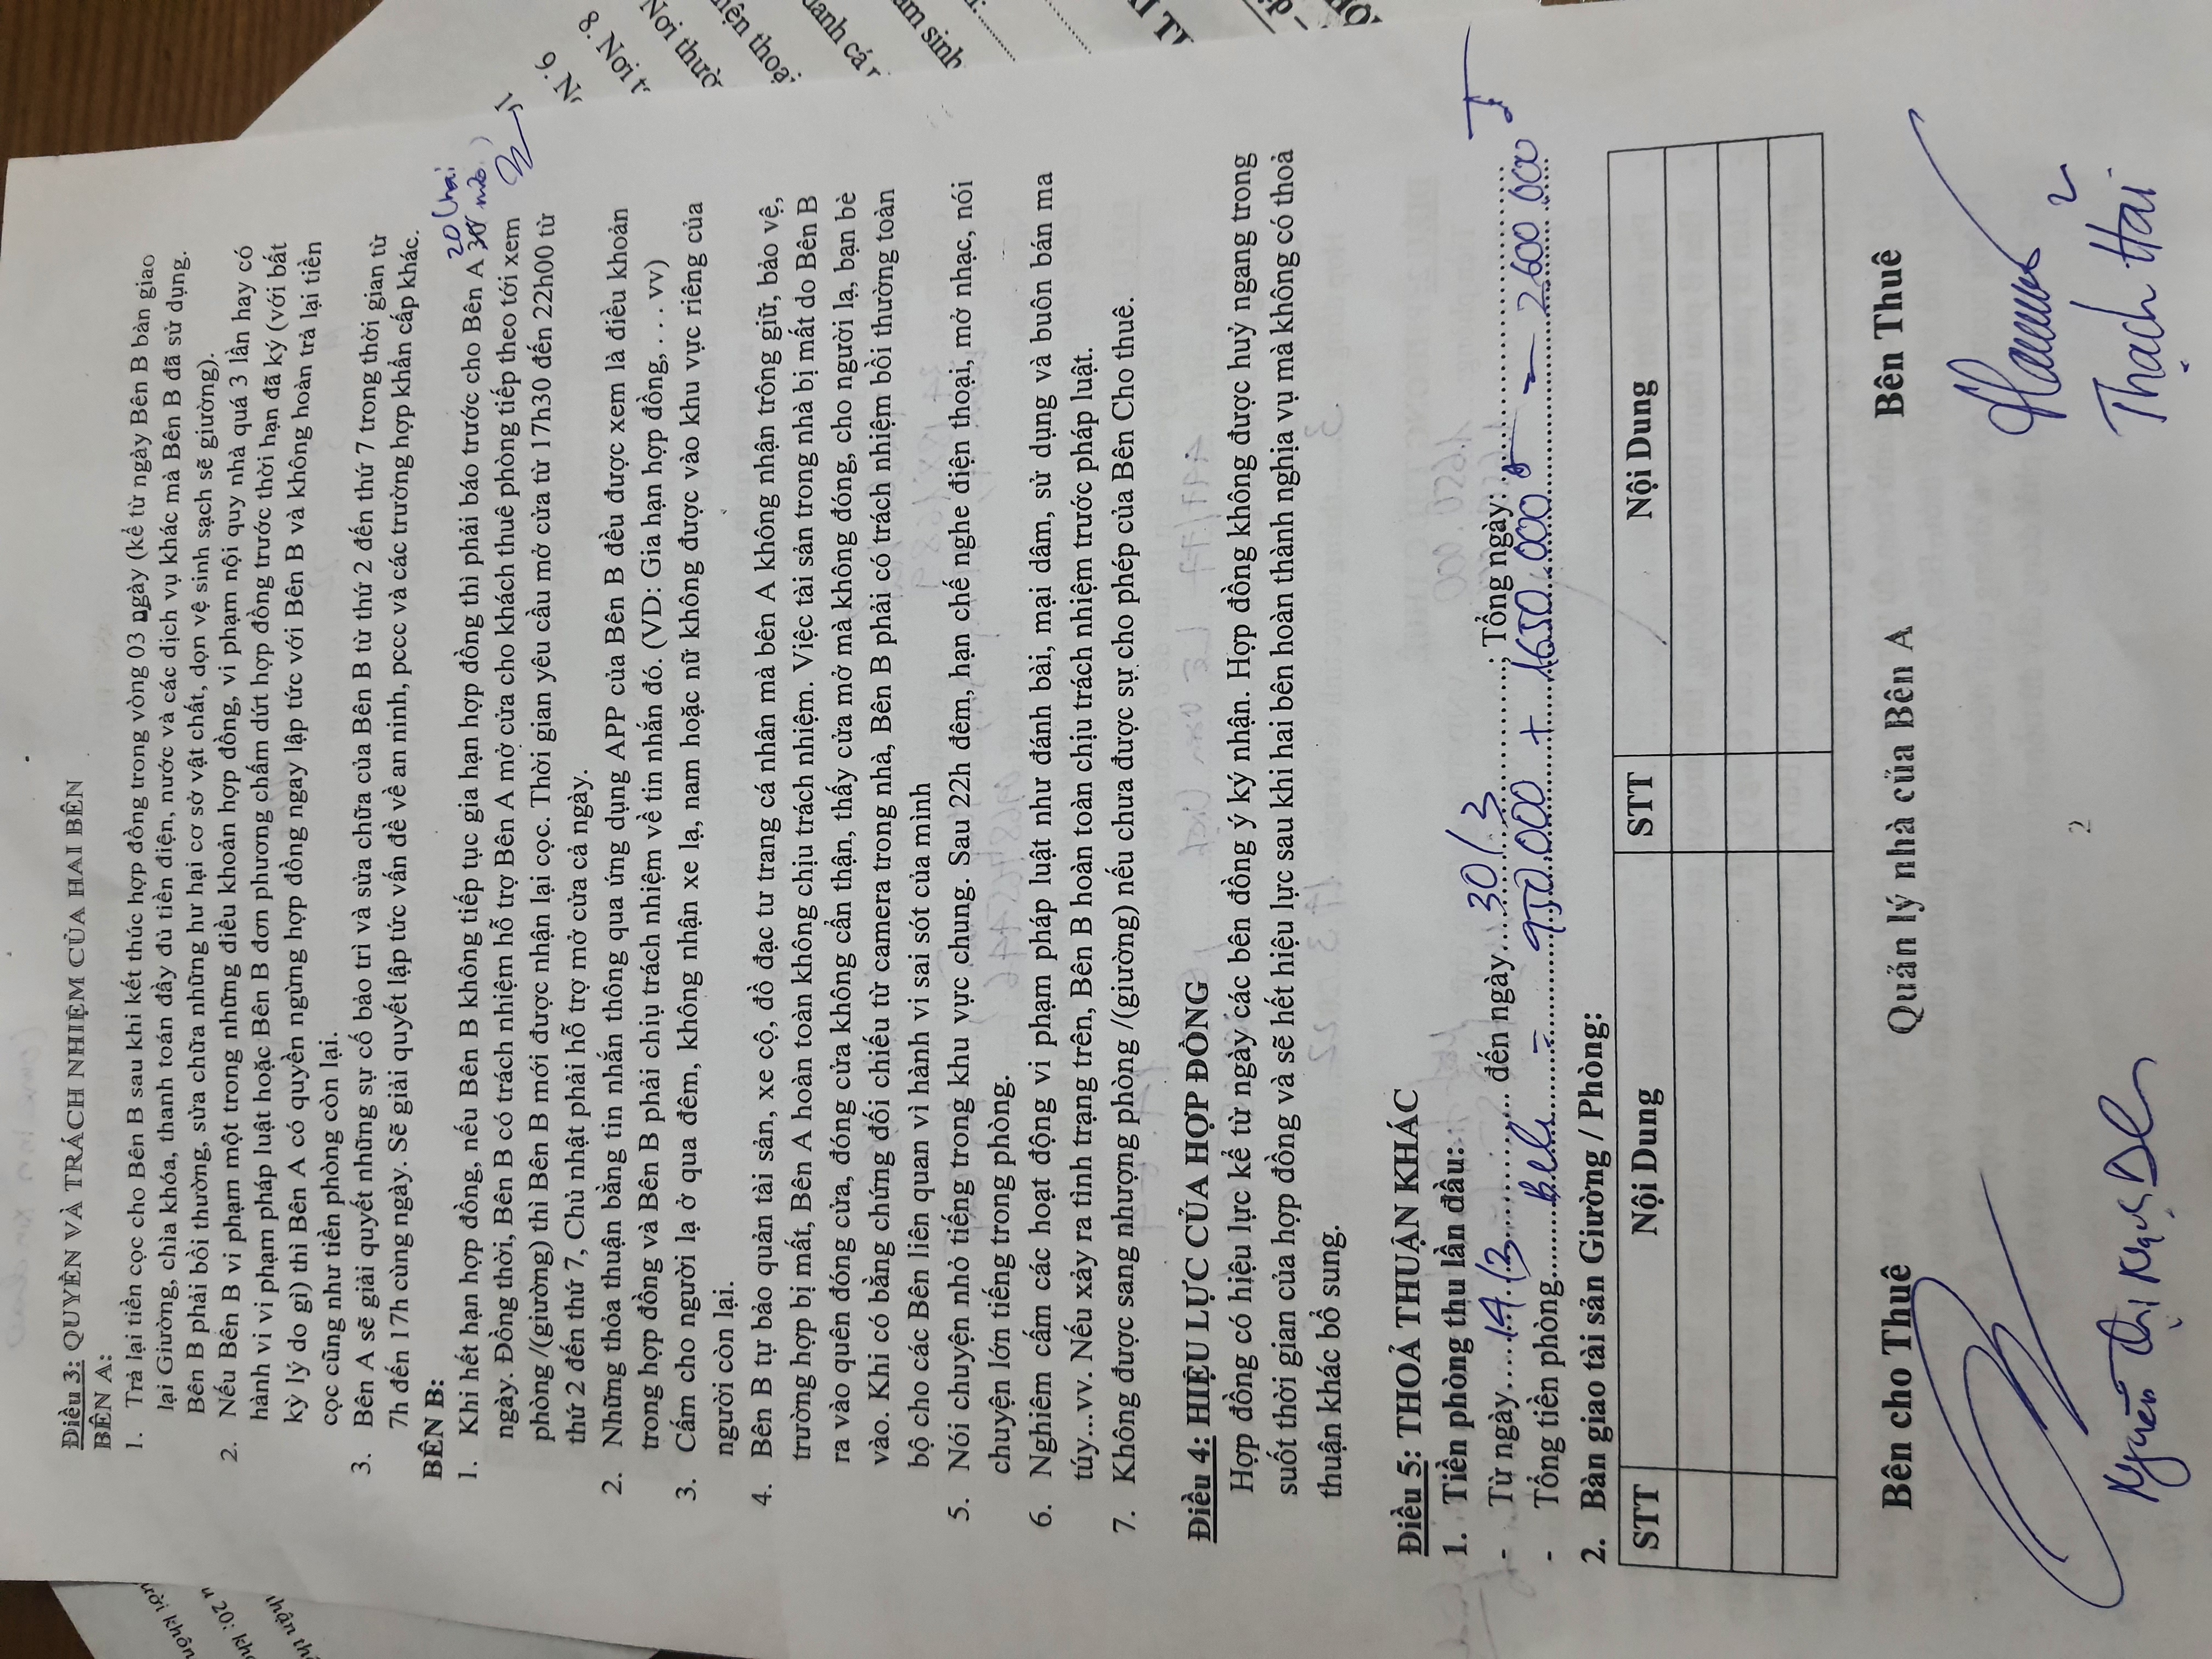 Điều 3: QUYỀN VÀ TRÁCH NHIỆM CỦA HAI BÊN
BÊN A:
1. Trả lại tiền cọc cho Bên B sau khi kết thúc hợp đồng trong vòng 03 ngày (kể từ ngày Bên B bàn giao
lại Giường, chìa khóa, thanh toán đầy đủ tiền điện, nước và các dịch vụ khác mà Bên B đã sử dụng.
Bên B phải bồi thường, sửa chữa những hư hại cơ sở vật chất, dọn vệ sinh sạch sẽ giường).
2. Nếu Bên B vi phạm một trong những điều khoản hợp đồng, vi phạm nội quy nhà quá 3 lần hay có
hành vi vi phạm pháp luật hoặc Bên B đơn phương chấm dứt hợp đồng trước thời hạn đã ký (với bất
kỳ lý do gì) thì Bên A có quyền ngừng hợp đồng ngay lập tức với Bên B và không hoàn trả lại tiền
cọc cũng như tiền phòng còn lại.
3. Bên A sẽ giải quyết những sự cố bảo trì và sửa chữa của Bên B từ thứ 2 đến thứ 7 trong thời gian từ
7h đến 17h cùng ngày. Sẽ giải quyết lập tức vấn đề về an ninh, pccc và các trường hợp khẩn cấp khác.
BÊN B:
20 (hai
1. Khi hết hạn hợp đồng, nếu Bên B không tiếp tục gia hạn hợp đồng thì phải báo trước cho Bên A 30
ngày. Đồng thời, Bên B có trách nhiệm hỗ trợ Bên A mở cửa cho khách thuê phòng tiếp theo tới xem
phòng /(giường) thì Bên B mới được nhận lại cọc. Thời gian yêu cầu mở cửa từ 17h30 đến 22h00 từ
thứ 2 đến thứ 7, Chủ nhật phải hỗ trợ mở cửa cả ngày.
2. Những thỏa thuận bằng tin nhắn thông qua ứng dụng APP của Bên B đều được xem là điều khoản
trong hợp đồng và Bên B phải chiụ trách nhiệm về tin nhắn đó. (VD: Gia hạn hợp đồng, . . . vv)
3. Cấm cho người lạ ở qua đêm, không nhận xe lạ, nam hoặc nữ không được vào khu vực riêng của
người còn lại.
4. Bên B tự bảo quản tài sản, xe cộ, đồ đạc tư trang cá nhân mà bên A không nhận trông giữ, bảo vệ,
trường hợp bị mất, Bên A hoàn toàn không chịu trách nhiệm. Việc tài sản trong nhà bị mất do Bên B
ra vào quên đóng cửa, đóng cửa không cẩn thận, thấy cửa mở mà không đóng, cho người lạ, bạn bè
vào. Khi có bằng chứng đối chiếu từ camera trong nhà, Bên B phải có trách nhiệm bồi thường toàn
bộ cho các Bên liên quan vì hành vi sai sót của mình
5. Nói chuyện nhỏ tiếng trong khu vực chung. Sau 22h đêm, hạn chế nghe điện thoại, mở nhạc, nói
chuyện lớn tiếng trong phòng.
6. Nghiêm cấm các hoạt động vi phạm pháp luật như đánh bài, mại dâm, sử dụng và buôn bán ma
túy...vv. Nếu xảy ra tình trạng trên, Bên B hoàn toàn chịu trách nhiệm trước pháp luật.
7. Không được sang nhượng phòng /(giường) nếu chưa được sự cho phép của Bên Cho thuê.
Điều 4: HIỆU LỰC CỦA HỢP ĐỒNG
Hợp đồng có hiệu lực kể từ ngày các bên đồng ý ký nhận. Hợp đồng không được huỷ ngang trong
suốt thời gian của hợp đồng và sẽ hết hiệu lực sau khi hai bên hoàn thành nghịa vụ mà không có thoả
thuận khác bổ sung.
Điều 5: THOẢ THUẬN KHÁC
1. Tiền phòng thu lần đầu:
- Từ ngày.....14/3............... đến ngày......30/3...............; Tổng ngày:...............
- Tổng tiền phòng............... 950.000 + 1650.000 2600 000
2. Bàn giao tài sản Giường / Phòng:
STT Nội Dung STT Nội Dung
Bên cho Thuê Quản lý nhà của Bên A Bên Thuê
Nguyễn Thị Thạch Hai
2